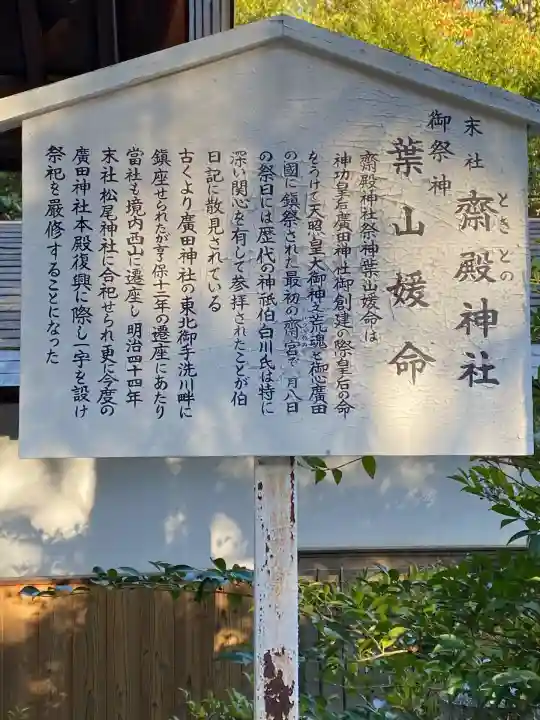 末社 齋殿神社
ときとの
御祭神
葉山媛命
齋殿神社祭神葉山媛命は
神功皇后廣田神社御創建の際皇后の命
をうけて天照皇大御神之荒魂を御心廣田
の國に鎮祭された最初の齋宮で一月八日
の祭日には歴代の神祇伯白川氏は特に
深い関心を有して参拝されたことが伯
日記に散見されている
古くより廣田神社の東北御手洗川畔に
鎮座せられたが享保十二年の遷座にあたり
當社も境内西山に遷座し明治四十四年
末社松尾神社に合祀せられ更に今度の
廣田神社本殿復興に際し一宇を設け
祭祀を厳修することになった